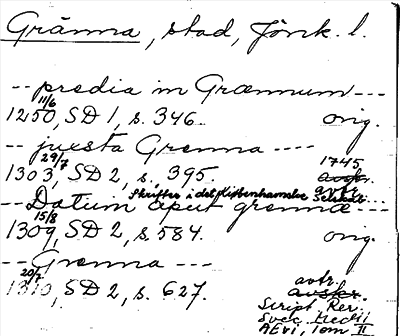 Gränna, stad, Jönk. l.
-- predia in Grænnum ---
1250 11/6, SD 1, s. 346. orig.
-- juxta Grenna ----
1303 29/7, SD 2, s. 395. 1745 avskr. avtr.
Skrifter i det Kiøbenhavnske Selskab
-- Datum aput grennæ ---
1309 15/8, SD 2, s. 584. orig.
-- Grenna ---
1310 20/7, SD 2, s. 627. avtr. avskr.
Script. Rer.
Svec. Medii
AEvi, Tom II